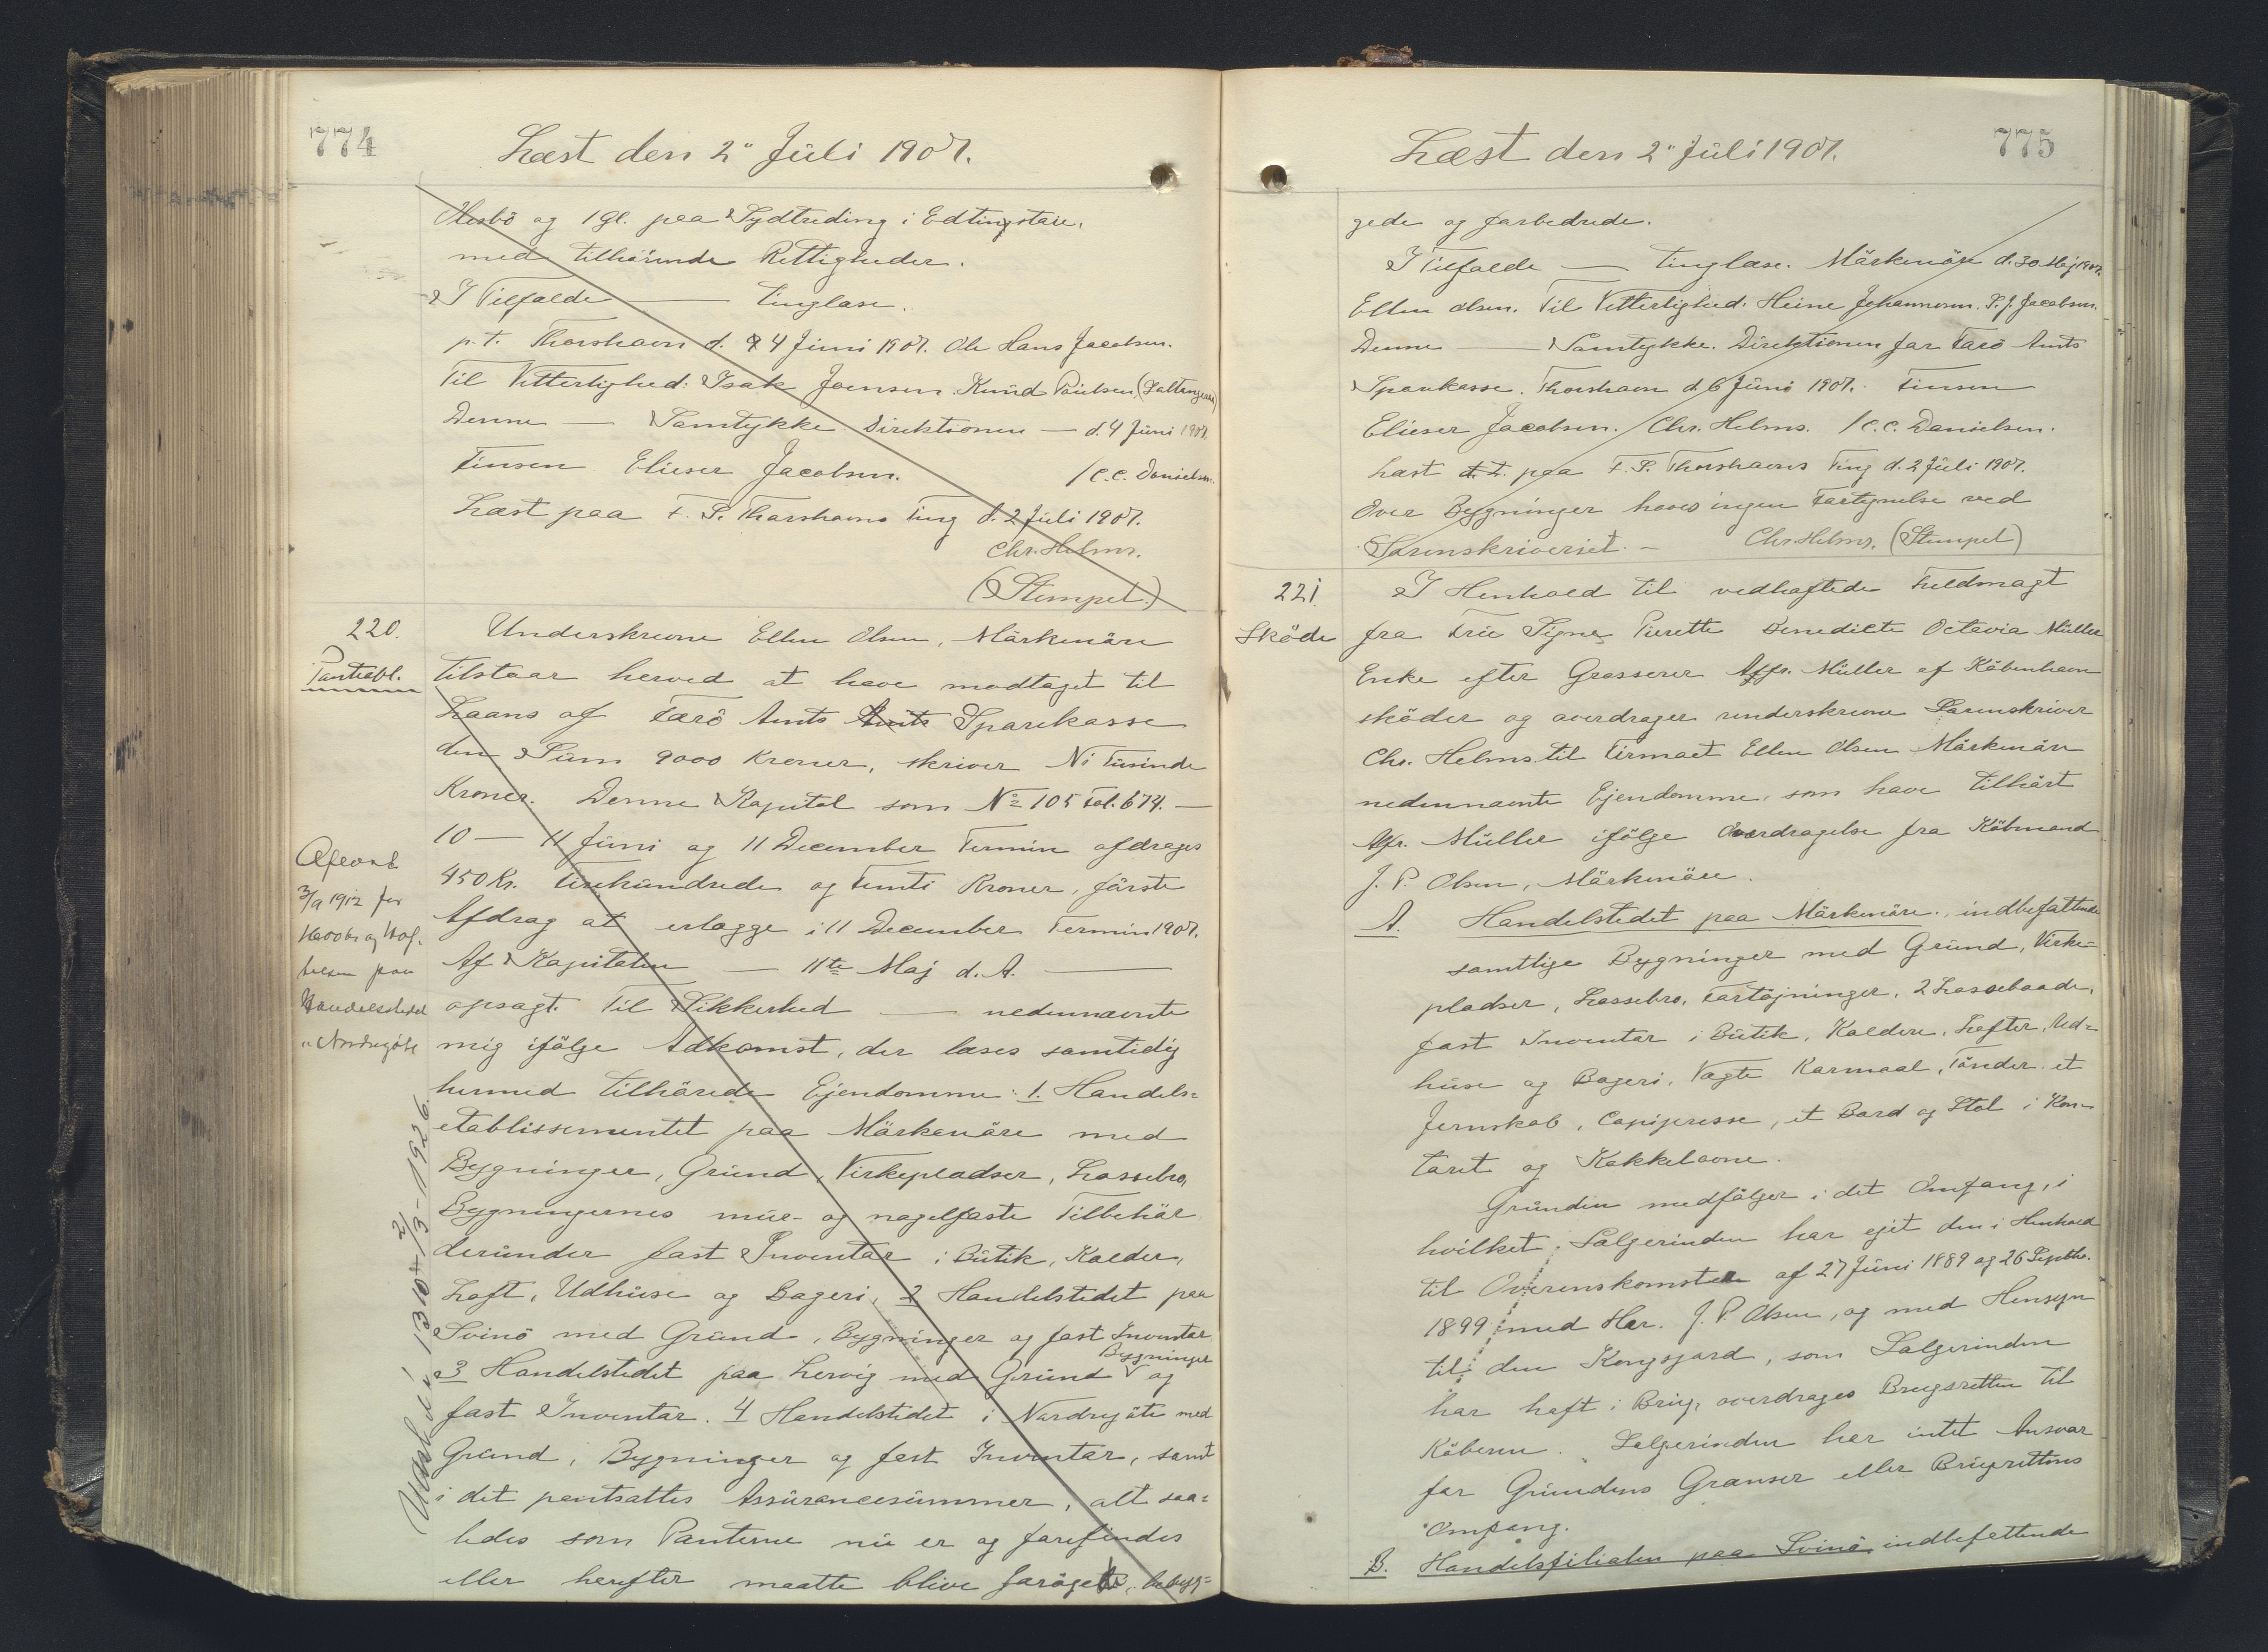 774
Læst den 2' Juli 1907.
Husbö og 1 gl. paa Sydtreding i Edtingstaie.
med tilhörende Rettigheder.
I Tilfælde — tinglæse.
p.t. Thorshavn d. 4 Juni 1907. Ole Hans Jacobsen.
Til Vitterlighed: Isak Joensen. Knud Poulsen.
Denne — Samtykke Direktionen — d. 4 Juni 1907.
Finsen Elieser Jacobsen. /C.C. Danielsen.
Læst paa F. S. Thorshavns Ting d. 2 Juli 1907.
Chr. Helms.
(Stempel.)
220. Underskrevne Ellen Olsen, Mårkenöre
Panteobl. tilstaar herved at have modtaget til
Laans af Færö Amts Amts Sparekasse
den Sum 9000 Kroner, skriver Ni Tusinde
Kroner. Denne Kapital som № 105 Fol. 674. —
10 — 11 Juni og 11 December Termin afdrages
450 Kr. Firehundrede og Femti Kroner, förste
Afdrag at erlægge i 11 December Termin 1907.
Af Kapitalen — 11te Maj d. A. —
opsagt. Til Sikkerhed — nedennævnte
mig ifölge Adkomst, der læses samtidig
hermed tilhörede Ejendomme: 1. Handels=
etablissementet paa Mårkenöre med
Bygninger, Grund, Virkepladser, Lossebro,
Bygningernes mur- og nagelfaste Tilbehör
derunder fast Inventar i Butik, Kælder,
Loft, Udhuse og Bageri, 2 Handelstedet paa
Svinö med Grund, Bygninger og fast Inventar
3 Handelstedet paa Lervig med Grund Bygninger og
fast Inventar. 4 Handelstedet i Nordregöte med
Grund, Bygninger og fast Inventar, samt
i det pantsattes Assurancesummer, alt saa=
ledes som Panterne nu er og forefindes
eller herefter maatte blive forögede, bebyg=
Aflæst
3/9 1912 for
1600 kr og
paa
Handelsstedet
i Nordregöte
Udslettet 13104 2/3-1926.
775
Læst den 2' Juli 1907.
gede og forbedrede.
I Tilfælde — tinglæse. Mårkenöre d. 30 Maj 1907.
Ellen Olsen. Til Vitterlighed: Heine Johannesen. P. J. Jacobsen.
Denne — Samtykke. Direktionen for Færö Amts
Sparekasse. Thorshavn d. 6 Juni 1907. Finsen
Elieser Jacobsen. / Chr. Helms. /C.C. Danielsen.
Læst d. 2. paa F. S. Thorshavns Ting d. 2 Juli 1907.
Over Bygninger haves ingen Fortegnelse ved
Sorenskriveriet. — Chr. Helms. (Stempel)
221. I Henhold til vedhæftede Fuldmagt
Sköde fra Frue Signe Pierette Benedikte Octavia Müller
Enke efter Grosserer Alfr. Müller af Köbenhavn
sköder og overdrager underskrevne Sorenskriver
Chr. Helms til Firmaet Ellen Olsen Mårkenöre
nedennævnte Ejendomme, som have tilhört
Alfr. Müller ifölge Overdragelse fra Köbmand
J. P. Olsen, Mårkenöre.
A. Handelstedet paa Mårkenöre, indbefattende
samtlige Bygninger med Grund, Virke=
pladser, Lossebro, Fortöjninger, 2 Lossebaade,
fast Inventar i Butik, Kældere, Lofter, Ud=
huse og Bageri, Vægte Karmaal, Tönder et
Jernskab, Copipresse, et Bord og Stol i Kon=
toret og Kakkelovne.
Grunden medfölger i det Omfang, i
hvilket Sælgerinden har ejet den i Henhold
til Overenskomster af 27 Juni 1889 og 26 Septbr.
1899 med Hr. J. P. Olsen, og med Hensyn
til den Kongsjord, som Sælgerinden
har haft i Brug, overdrages Brugsretten til
Köberen. Sælgerinden har intet Ansvar
for Grundens Grænser eller Brugrettens
Omfang.
B. Handelsfilialen paa Svinö, indbefattende